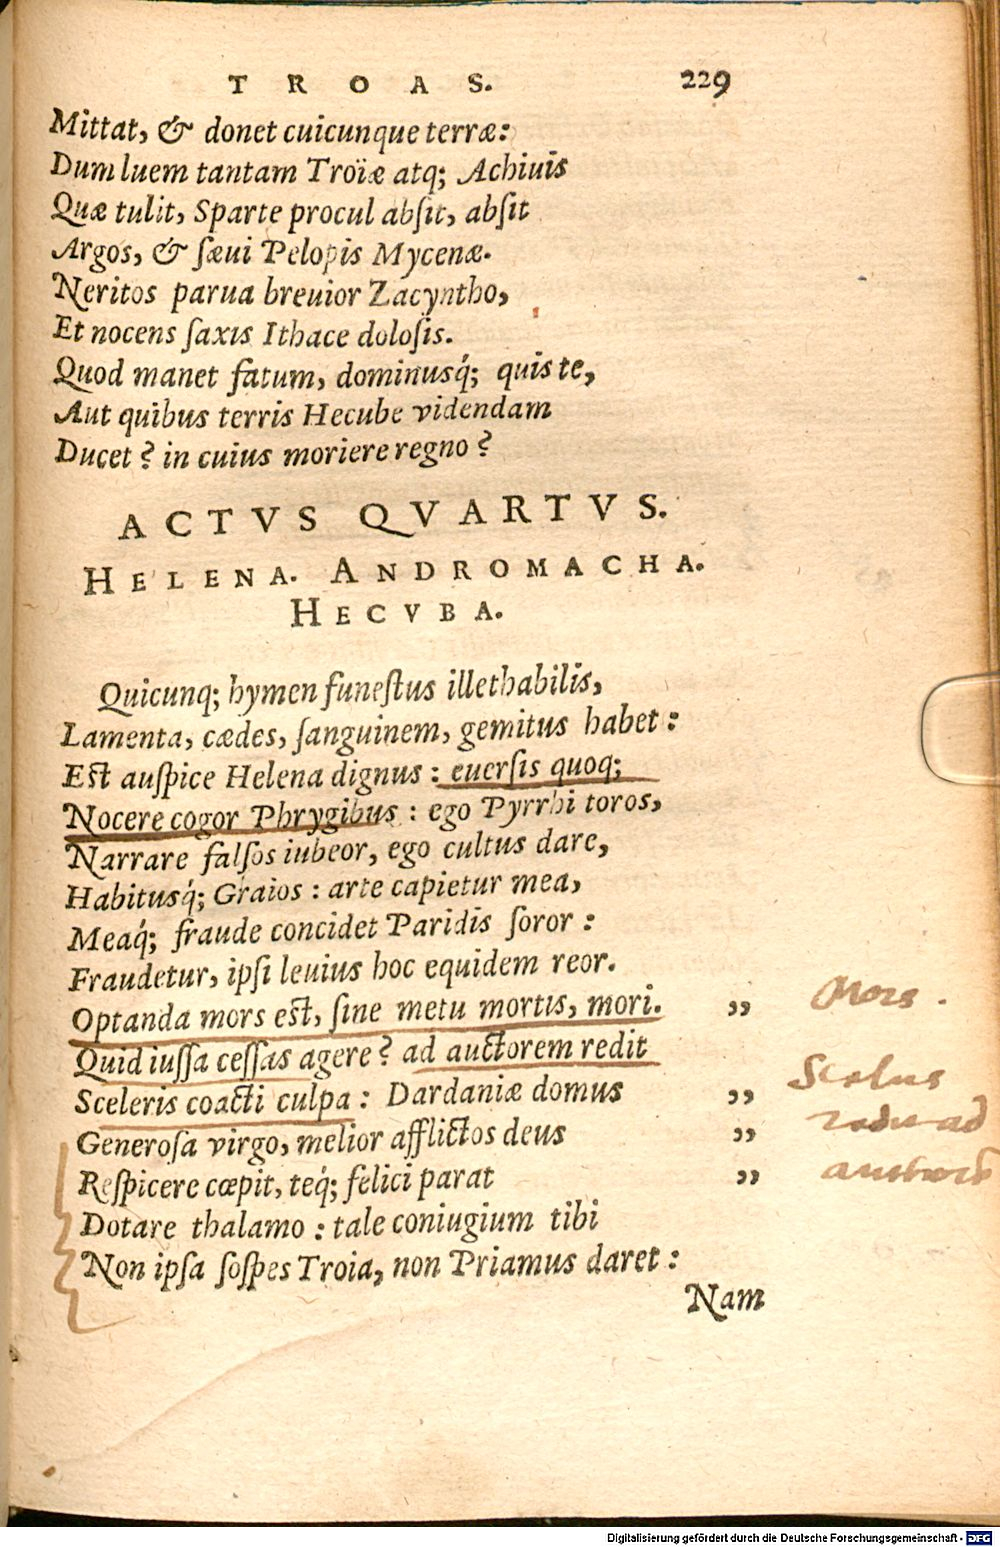 TROAS. 229
Mittat, & donet cuicunque terræ:
Dum luem tantam Troïæ atq; Achiuis
Quæ tulit, Sparte procul absit, absit
Argos, & sæui Pelopis Mycenæ.
Neritos parua breuior Zacyntho,
Et nocens saxis Ithace dolosis.
Quod manet fatum, dominusq́; quis te,
Aut quibus terris Hecube videndam
Ducet? in cuius moriere regno?
ACTVS QVARTVS.
HELENA. ANDROMACHA.
HECVBA.
Quicunq; hymen funestus illethabilis,
Lamenta, cædes, sanguinem, gemitus habet:
Est auspice Helena dignus: euersis quoq;
Nocere cogor Phrygibus: ego Pyrrhi toros,
Narrare falsos iubeor, ego cultus dare,
Habitusq́; Graios: arte capietur mea,
Meaq́; fraude concidet Paridis soror:
Fraudetur, ipsi leuius hoc equidem reor.
Optanda mors est, sine metu mortis, mori. „ Mors.
Quid iussa cessas agere? ad auctorem redit
Sceleris coacti culpa: Dardaniæ domus „ Scelus
Generosa virgo, melior afflictos deus „ redit ad
Respicere cœpit, teq́; felici parat „
Dotare thalamo: tale coniugium tibi
Non ipsa sospes Troia, non Priamus daret:
Nam
Digitalisierung gefördert durch die Deutsche Forschungsgemeinschaft - DFG